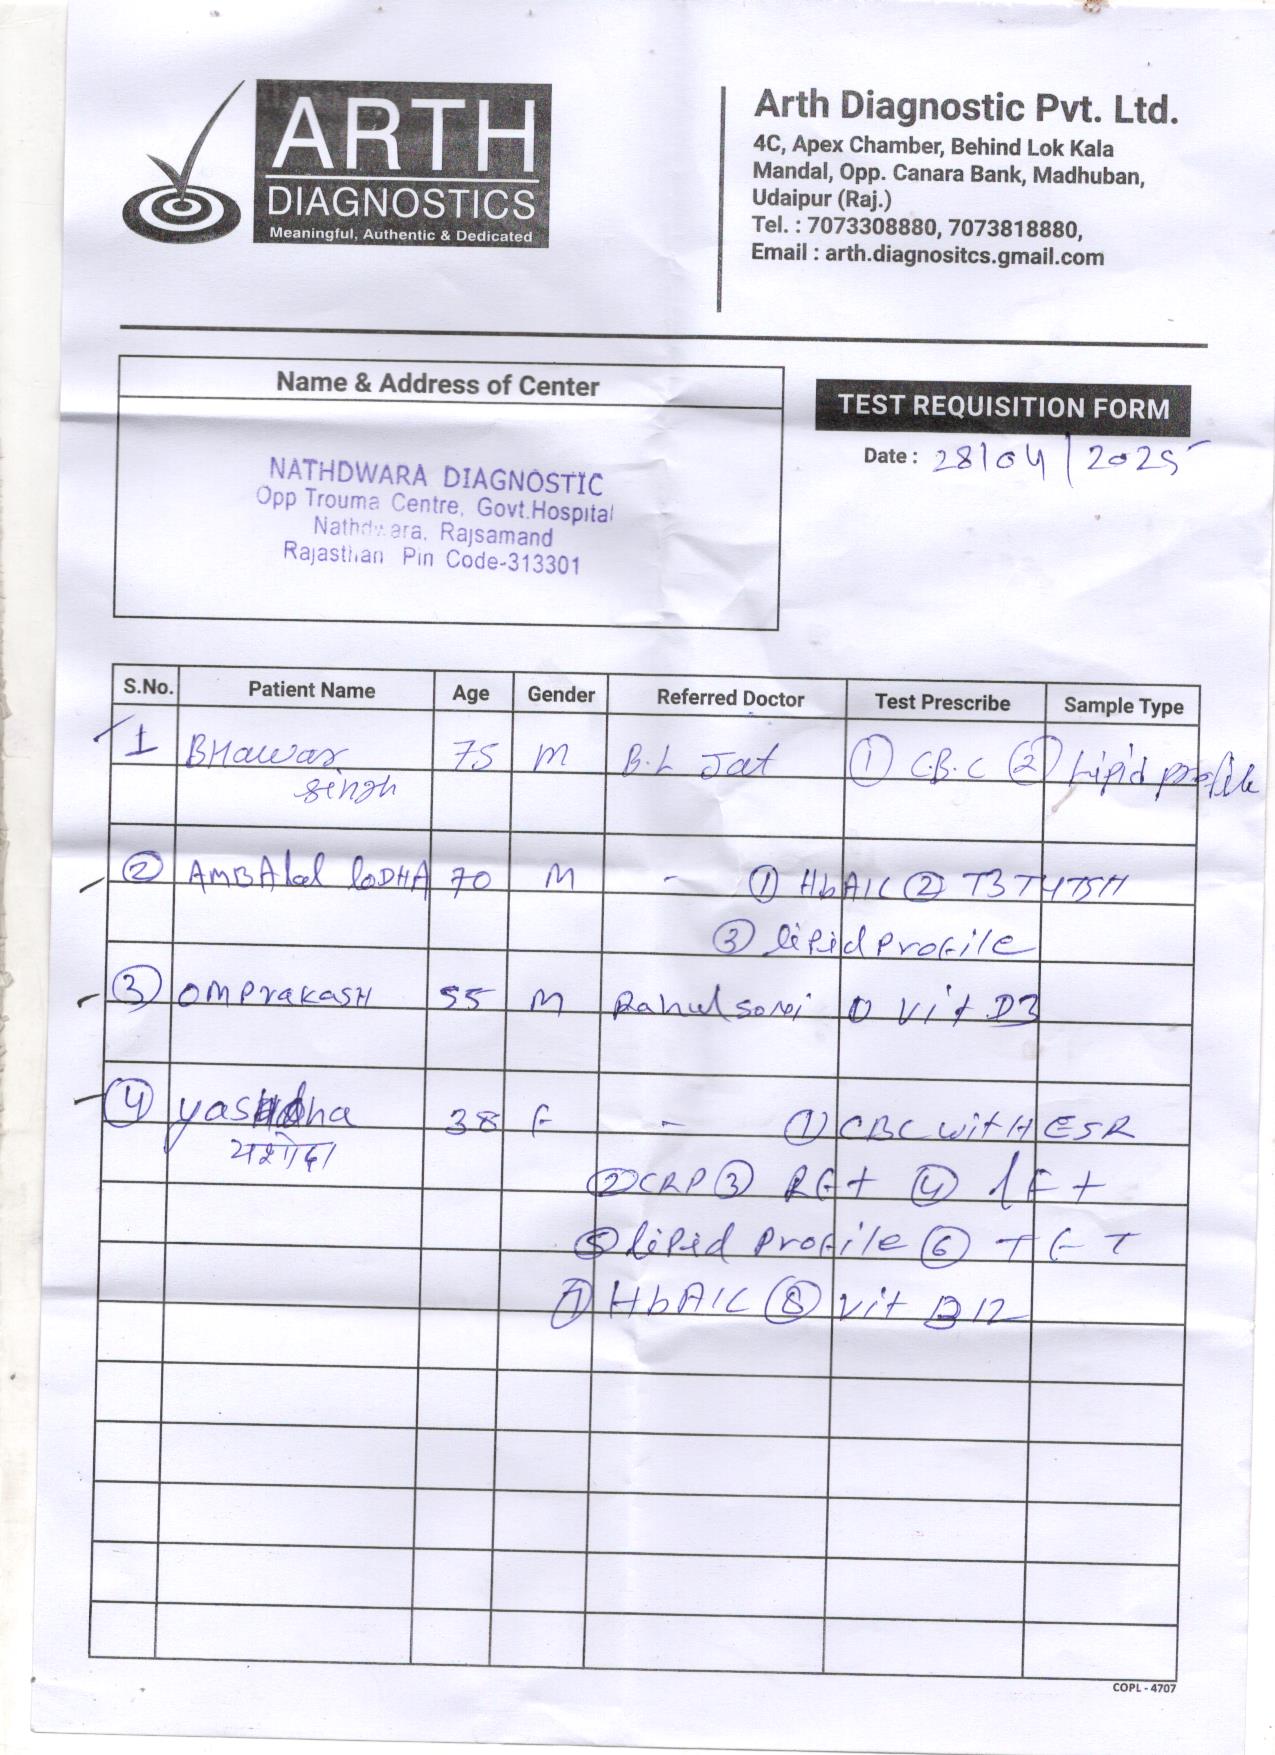 ARTH
DIAGNOSTICS
Meaningful, Authentic & Dedicated
Arth Diagnostic Pvt. Ltd.
4C, Apex Chamber, Behind Lok Kala
Mandal, Opp. Canara Bank, Madhuban,
Udaipur (Raj.)
Tel. : 7073308880, 7073818880,
Email : arth.diagnositcs.gmail.com
Name & Address of Center
NATHDWARA DIAGNOSTIC
Opp Trouma Centre, Govt.Hospital
Nathdwara, Rajsamand
Rajasthan Pin Code-313301
TEST REQUISITION FORM
Date : 28/04/2025
S.No. Patient Name Age Gender Referred Doctor Test Prescribe Sample Type
1 BHawar 75 M B.L Jat ① C.B.C ② Lipid profile
singh
② AMBAlal loDHA 70 M - ① HbA1C ② T3 T4 TSH
③ lipid profile
③ OMPrakASH 55 M Rahul soni ① Vit D3
④ yashdha 38 F - ① CBC witH ESR
यशोदा
② CRP ③ RFt ④ lFt
⑤ lipid profile ⑥ TFT
⑦ HbA1C ⑧ Vit B12
COPL - 4707